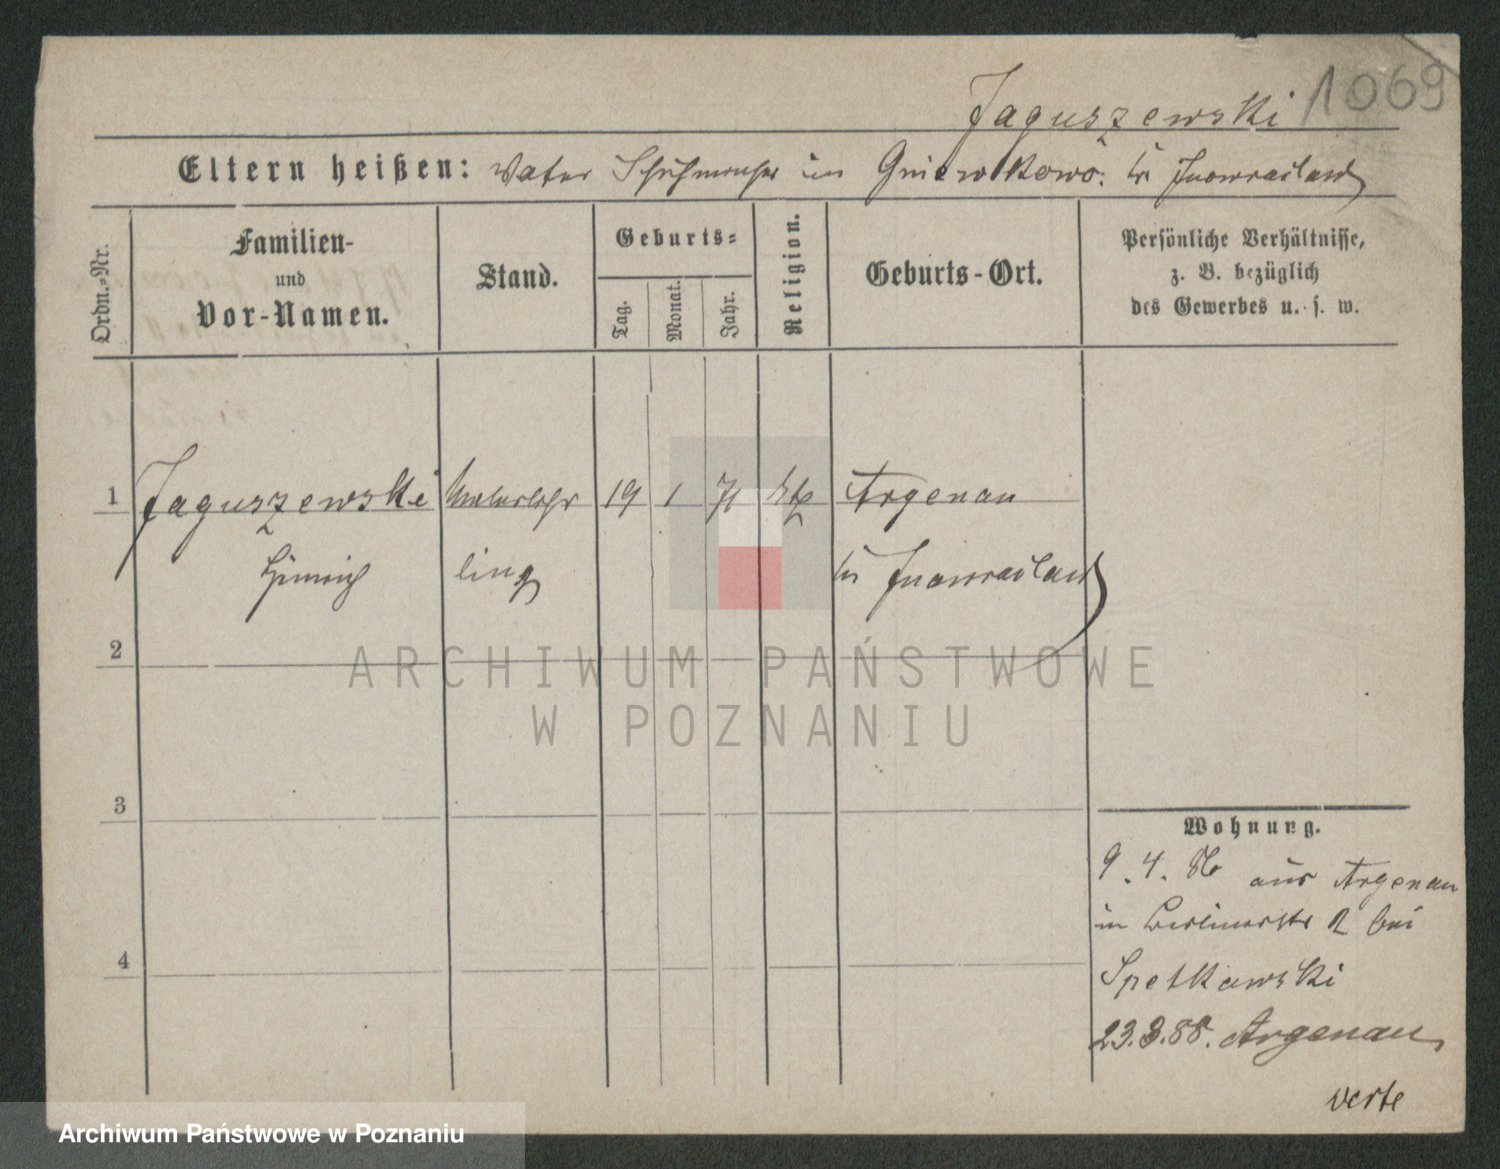 Jaguszewski 1069
Eltern heißen: Vater Schuhmacher in Gniewkowo. Kr Inowraclaw
Ordn.-Nr.
Familien-
und
Vor-Namen.
Stand.
Geburts-
Tag.
Monat.
Jahr.
Religion.
Geburts-Ort.
Persönliche Verhältnisse,
z. B. bezüglich
des Gewerbes u. s. w.
1 Jaguszewski Malerlehr 19 1 71 kth Argenau
Heinrich ling Kr Inowraclaw
2
3
4
Wohnung.
9. 4. 86 aus Argenau
in 2 bei
Spetkowski
23.3.88. Argenau
verte
ARCHIWUM PAŃSTWOWE
W POZNANIU
Archiwum Państwowe w Poznaniu